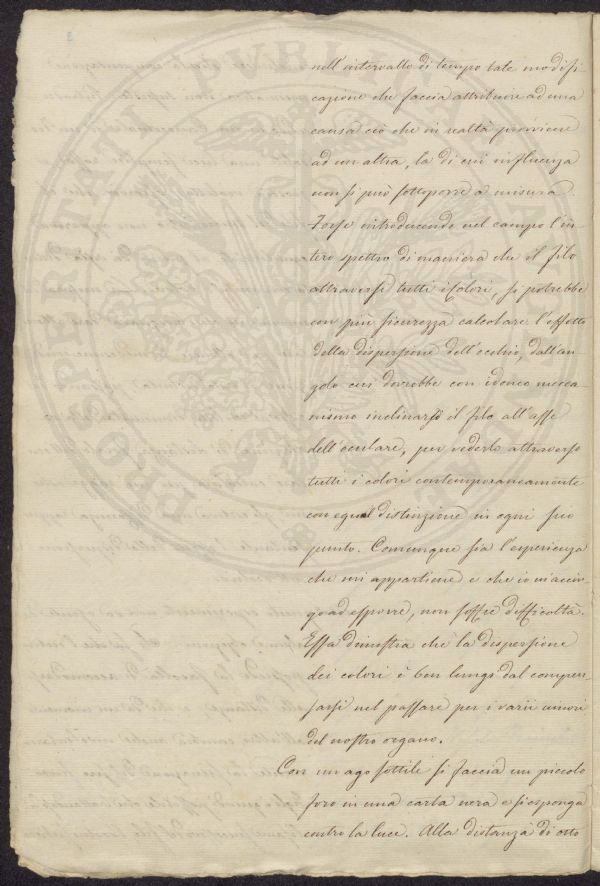 nell'intervallo di tempo tale modifi
cazione che faccia attribuire ad una
causa ciò che in realtà proviene
ad un altra, la di cui influenza
non si può sottoporre a misura.
Forse introducendo nel campo l'in
tero spettro di maniera che il filo
attraversi tutti i colori, si potrebbe
con più sicurezza calcolare l'effetto
della dispersione dell'occhio, dall'an
golo cui dovrebbe con idoneo mecca
nismo inclinarsi il filo all'asse
dell'oculare, per vederlo attraverso
tutti i colori contemporaneamente
con egual distinzione in ogni suo
punto. Comunque sia l'esperienza
che mi appartiene e che io m'accin
go ad esporre, non soffre difficoltà.
Essa dimostra che la dispersione
dei colori è ben lungi dal compen
sarsi nel passare per i varii umori
del nostro organo.
Con un ago sottile si faccia un piccolo
foro in una carta nera e si esponga
contro la luce. Alla distanza di otto
PROSPERITATI PVBLICAE